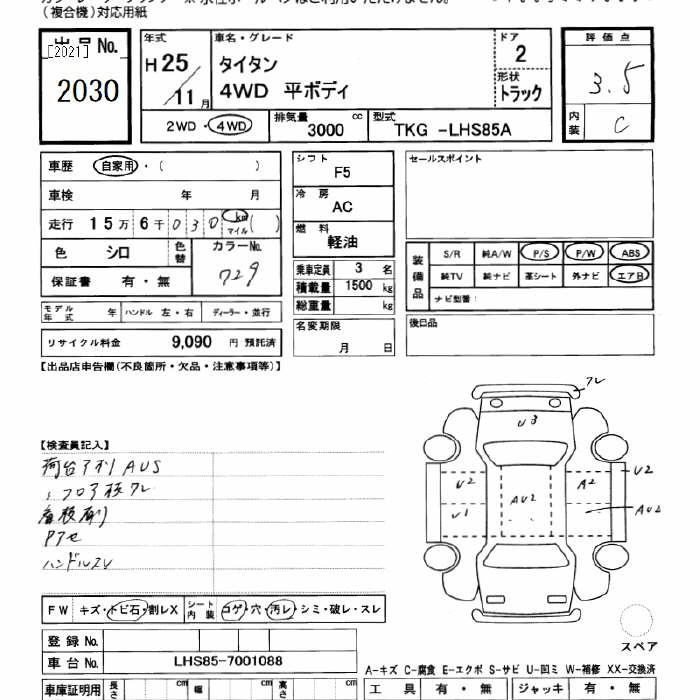 (複合機)対応用紙
出品No.
[2021]
2030
年式
H25/11月
車名・グレード
タイタン
4WD 平ボディ
ドア
2
形状
トラック
2WD・4WD
排気量
3000 cc
型式
TKG -LHS85A
評価点
3.5
内装
C
車歴 自家用・( )
車検 年 月
走行 15万6千030 km マイル( )
色 シロ
色替
カラーNo.
729
保証書 有・無
モデル年式 年
ハンドル 左・右
ディーラー・並行
リサイクル料金 9,090 円 預託済
シフト
F5
冷房
AC
燃料
軽油
乗車定員 3 名
積載量 1500 kg
総重量 kg
名変期限
月 日
セールスポイント
装備品
S/R 純A/W P/S P/W ABS
純TV 純ナビ 革シート 外ナビ エアB
ナビ型番:
後日品
【出品店申告欄(不良箇所・欠品・注意事項等)】
【検査員記入】
荷台アオリ AUS
フロア板ワレ
ハンドルスレ
ワレ
U3
U2
A2
U2
AU2
U1
AU2
FW キズ・トビ石・割レX
シート内装 コゲ・穴・汚レ・シミ・破レ・スレ
登録No.
車台No. LHS85-7001088
車庫証明用 長さ cm 幅 cm 高さ cm
スペア
A-キズ C-腐食 E-エクボ S-サビ U-凹ミ W-補修 XX-交換済
工具 有・無 ジャッキ 有・無